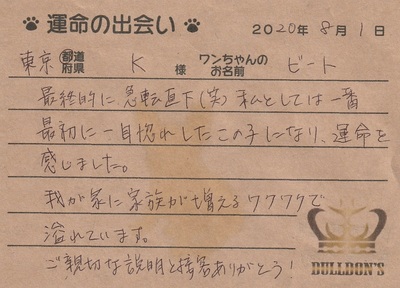 運命の出会い 2020年 8月 1日
東京 都道府県 K 様 ワンちゃんのお名前 ビート
最終的に急転直下(笑)私としては一番
最初に一目惚れしたこの子になり、運命を
感じました。
我が家に家族が増えるワクワクで
溢れています。
ご親切な説明と接客ありがとう!
BULLDON'S